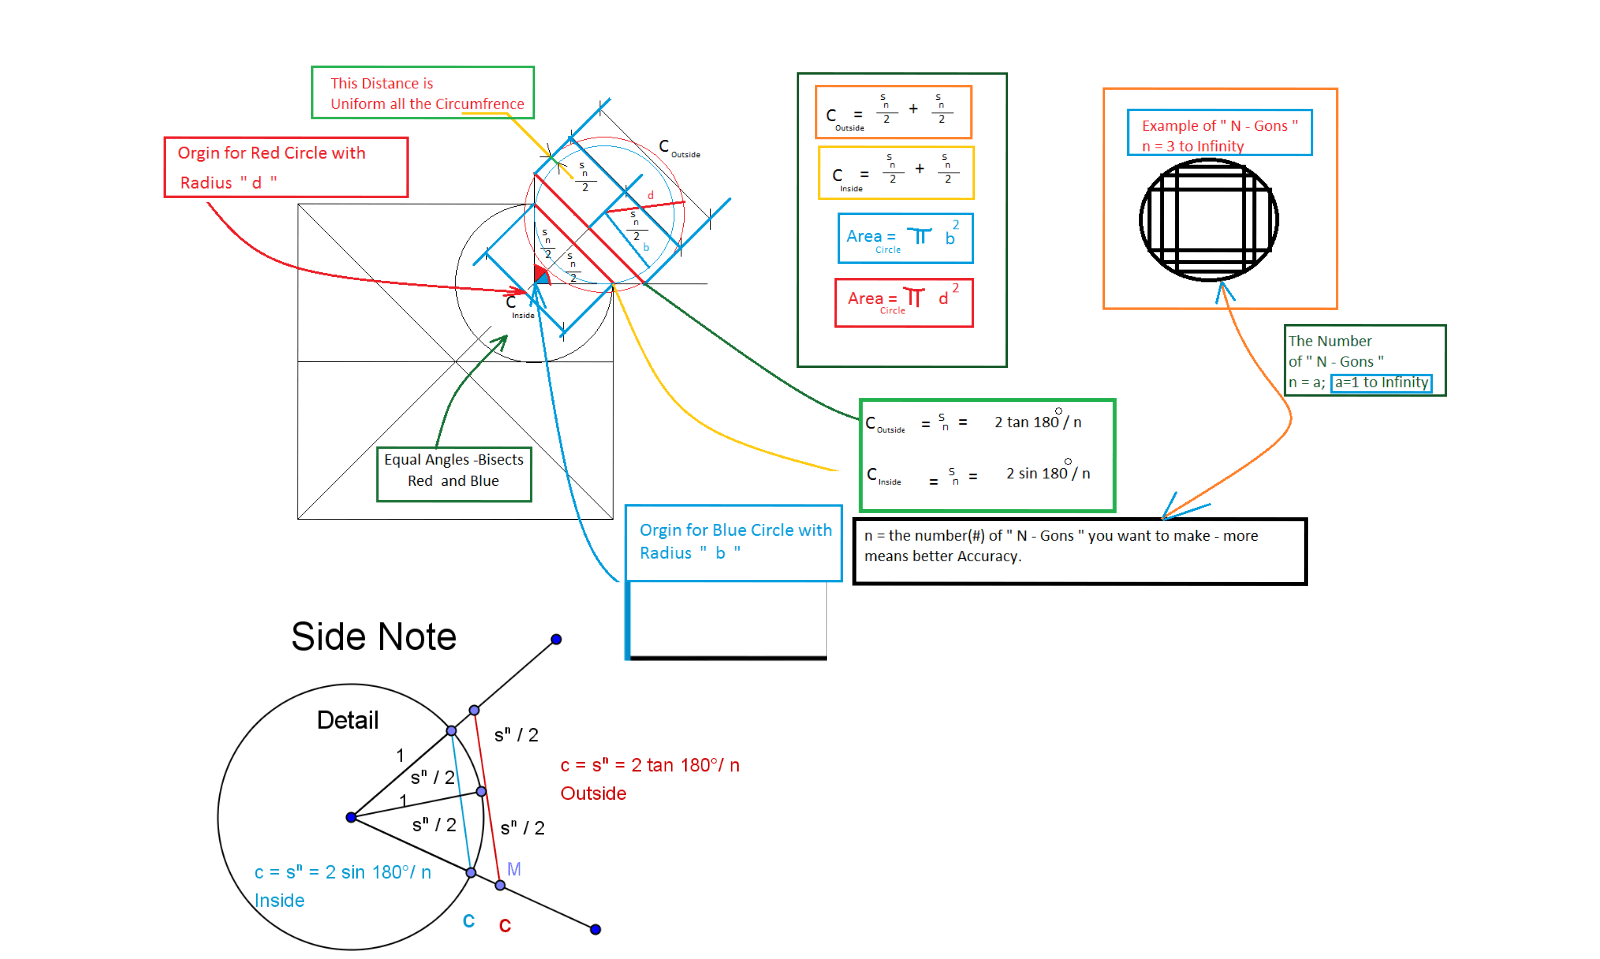 This Distance is
Uniform all the Circumfrence
Orgin for Red Circle with
Radius " d "
C Outside
s n / 2
d
s n / 2
b
s n / 2
s n / 2
C Inside
Equal Angles -Bisects
Red and Blue
C Outside = s n / 2 + s n / 2
C Inside = s n / 2 + s n / 2
Area Circle = π b 2
Area Circle = π d 2
Example of " N - Gons "
n = 3 to Infinity
The Number
of " N - Gons "
n = a; a=1 to Infinity
C Outside = s n = 2 tan 180° / n
C Inside = s n = 2 sin 180° / n
Orgin for Blue Circle with
Radius " b "
n = the number(#) of " N - Gons " you want to make - more
means better Accuracy.
Side Note
Detail
1
sⁿ / 2
1
sⁿ / 2
sⁿ / 2
sⁿ / 2
c = sⁿ = 2 tan 180°/ n
Outside
c = sⁿ = 2 sin 180°/ n
Inside
M
c
c